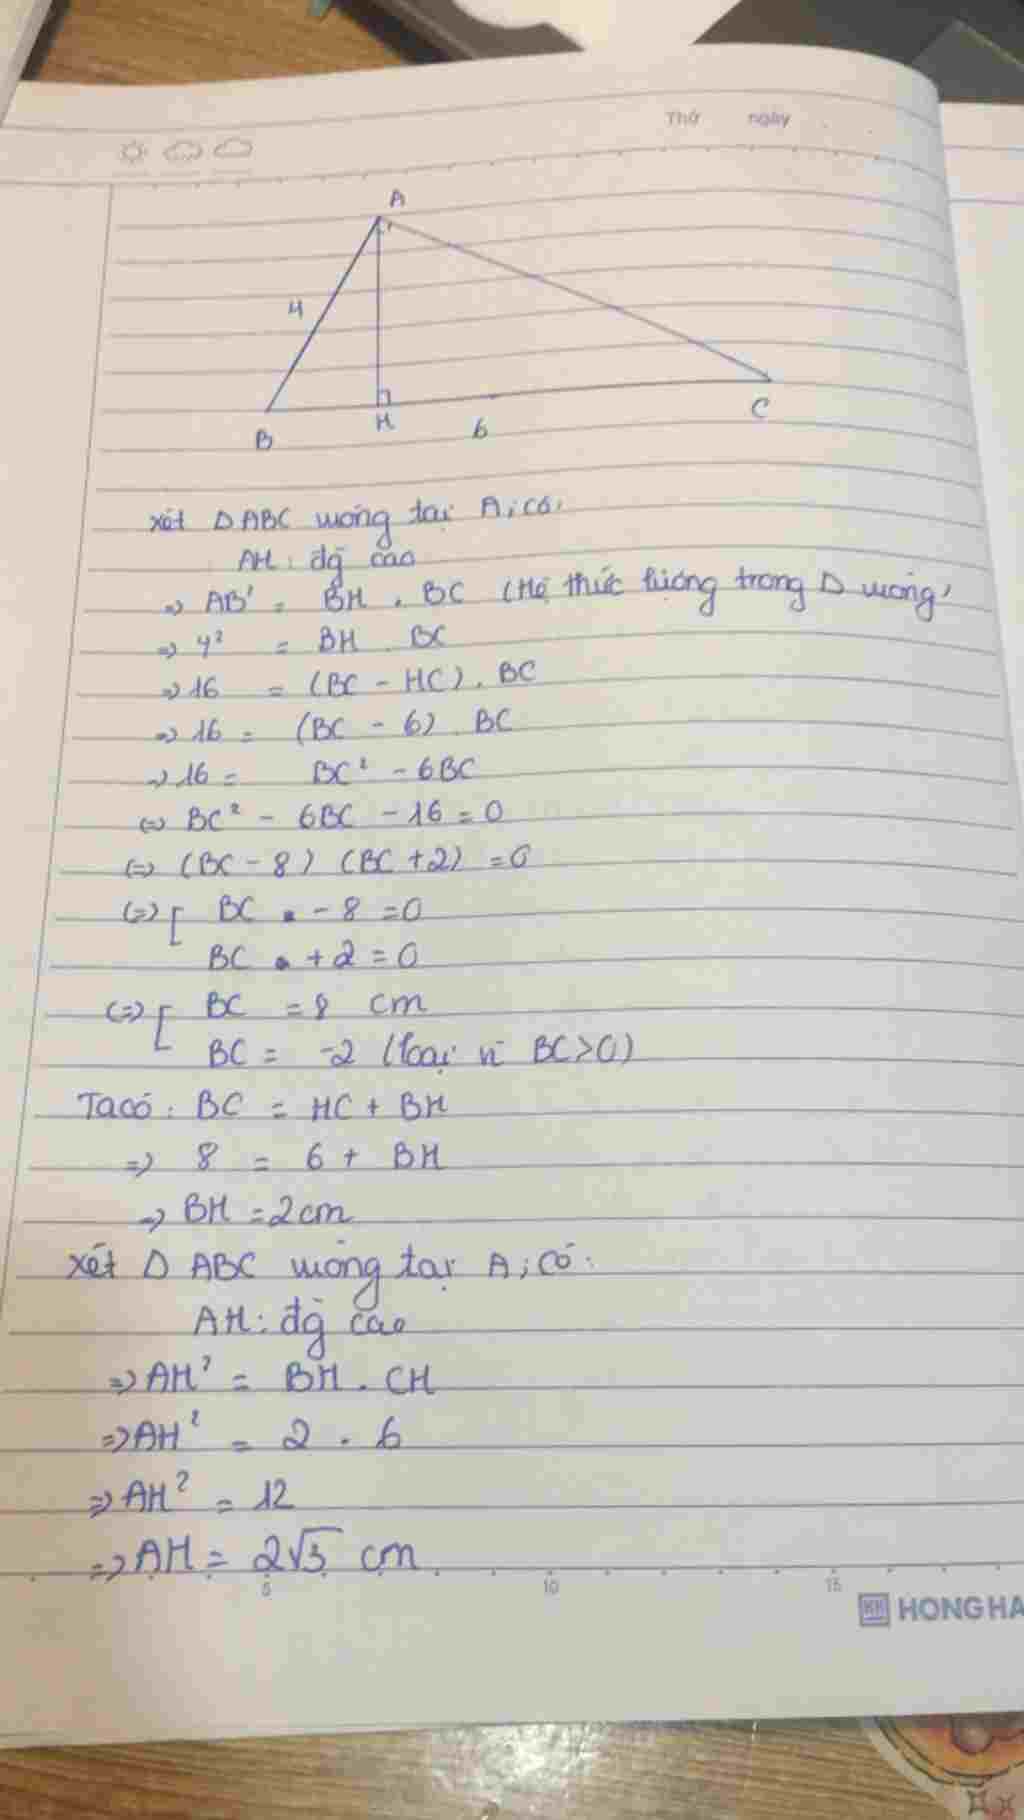 Thứ ngày
A
4
B H 6 C
Xét Δ ABC vuông tại A, có:
AH: đg cao
=> AB² = BH . BC (Hệ thức lượng trong Δ vuông)
=> 4² = BH . BC
=> 16 = (BC - HC) . BC
=> 16 = (BC - 6) . BC
=> 16 = BC² - 6BC
<=> BC² - 6BC - 16 = 0
<=> (BC - 8) (BC + 2) = 0
<=> [ BC - 8 = 0
BC + 2 = 0
<=> [ BC = 8 cm
BC = -2 (loại vì BC > 0)
Ta có: BC = HC + BH
=> 8 = 6 + BH
=> BH = 2cm
Xét Δ ABC vuông tại A, có:
AH: đg cao
=> AH² = BH . CH
=> AH² = 2 . 6
=> AH² = 12
=> AH = 2√3 cm
5 10 15
HH HONG HA